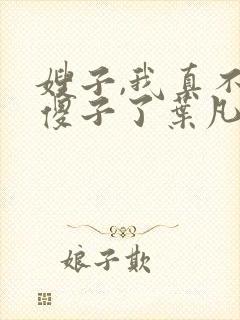 嫂子,我真不
傻子了葉凡
娘子欺